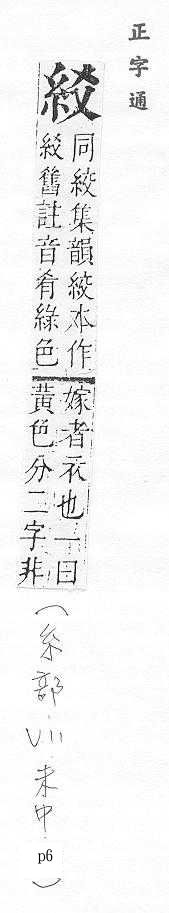 正字通
同絞集韻絞本作
舊註音肴綠色
嫁者衣也一曰
黃色分二字非
(糸部.VII.未中.p6)